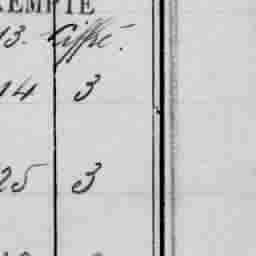 EMPTE
13. Ciffre.
14 3
25 3